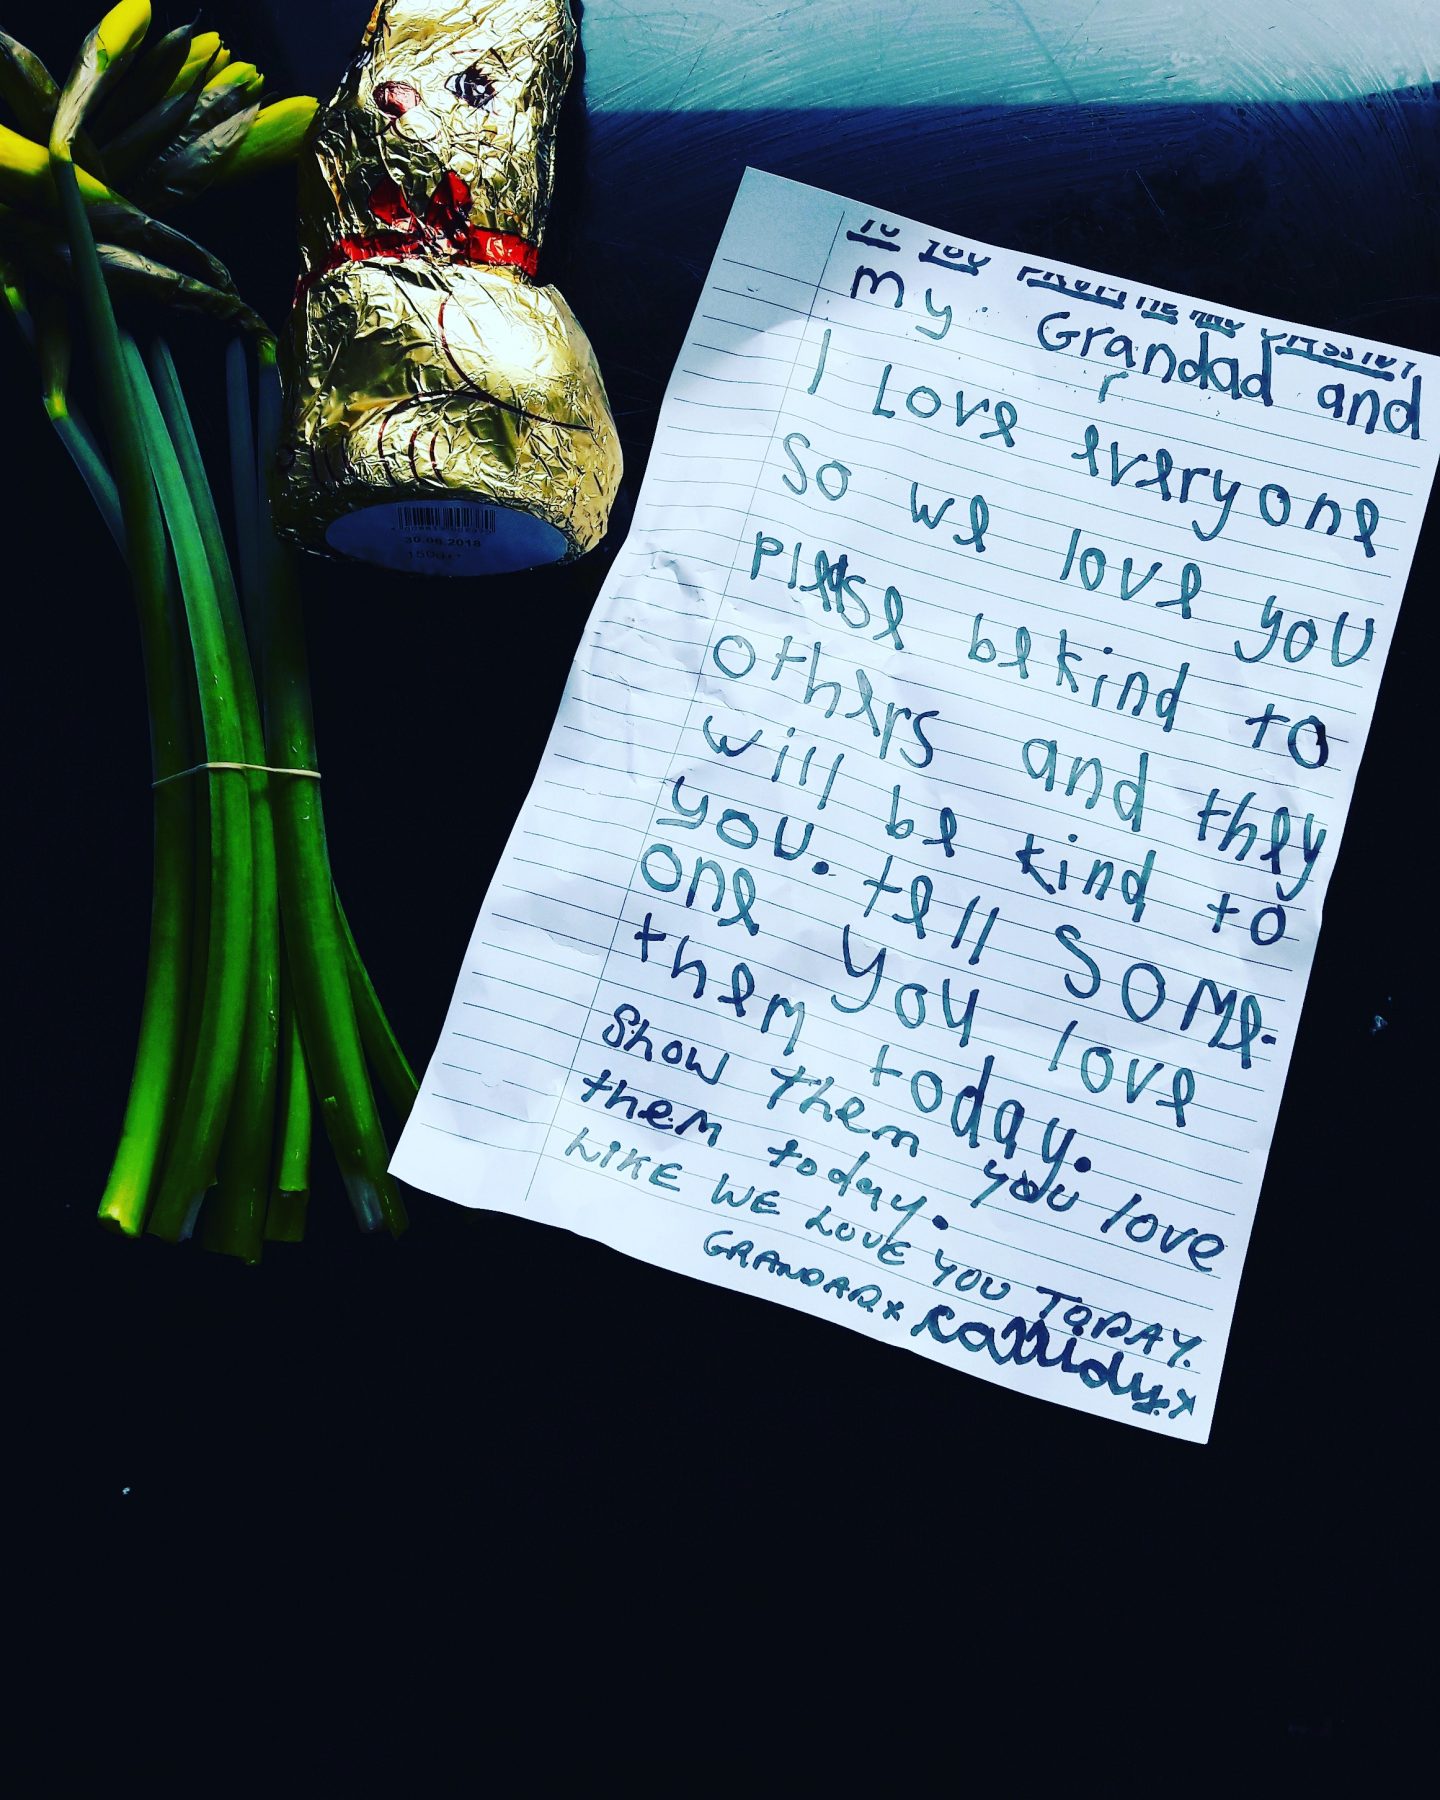 30.06.2018
150g
TO YOU FROM ME AND CASSIDY
My Grandad and
I Love everyone
So we love you
please be kind to
others and they
will be kind to
you. tell SOMe-
one you love
them today.
Show them you love
them today.
LIKE WE LOVE YOU TODAY.
GRANDAD x Cassidy.x